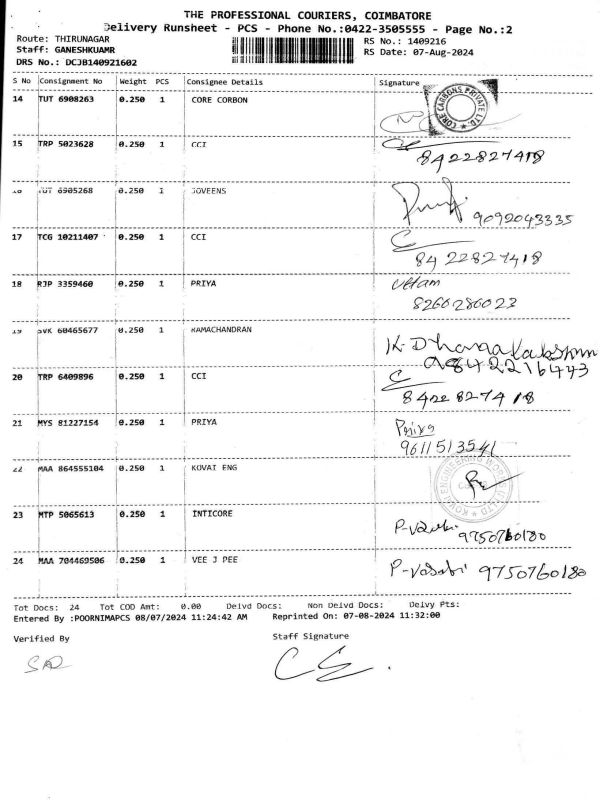 THE PROFESSIONAL COURIERS, COIMBATORE
Delivery Runsheet - PCS - Phone No.:0422-3505555 - Page No.:2
Route: THIRUNAGAR
Staff: GANESHKUAMR
DRS No.: DCJB140921602
RS No.: 1409216
RS Date: 07-Aug-2024
S No Consignment No Weight PCS Consignee Details Signature
14 TUT 6908263 0.250 1 CORE CORBON
CORE CARBONS PRIVATE LTD.
15 TRP 5023628 0.250 1 CCI
8422827418
16 TUT 6905268 0.250 1 JOVEENS
9092043335
17 TCG 10211407 0.250 1 CCI
8422827418
18 RJP 3359460 0.250 1 PRIYA uttam
8260286023
19 SVK 60465677 0.250 1 RAMACHANDRAN
9842216443
20 TRP 6409896 0.250 1 CCI
8422827418
21 MYS 81227154 0.250 1 PRIYA Priya
9611513541
22 MAA 864555104 0.250 1 KOVAI ENG
23 MTP 5065613 0.250 1 INTICORE
9750760180
24 MAA 704469506 0.250 1 VEE J PEE P-Vasuki 9750760180
Tot Docs: 24 Tot COD Amt: 0.00 Delvd Docs: Non Delvd Docs: Delvy Pts:
Entered By :POORNIMAPCS 08/07/2024 11:24:42 AM Reprinted On: 07-08-2024 11:32:00
Verified By Staff Signature